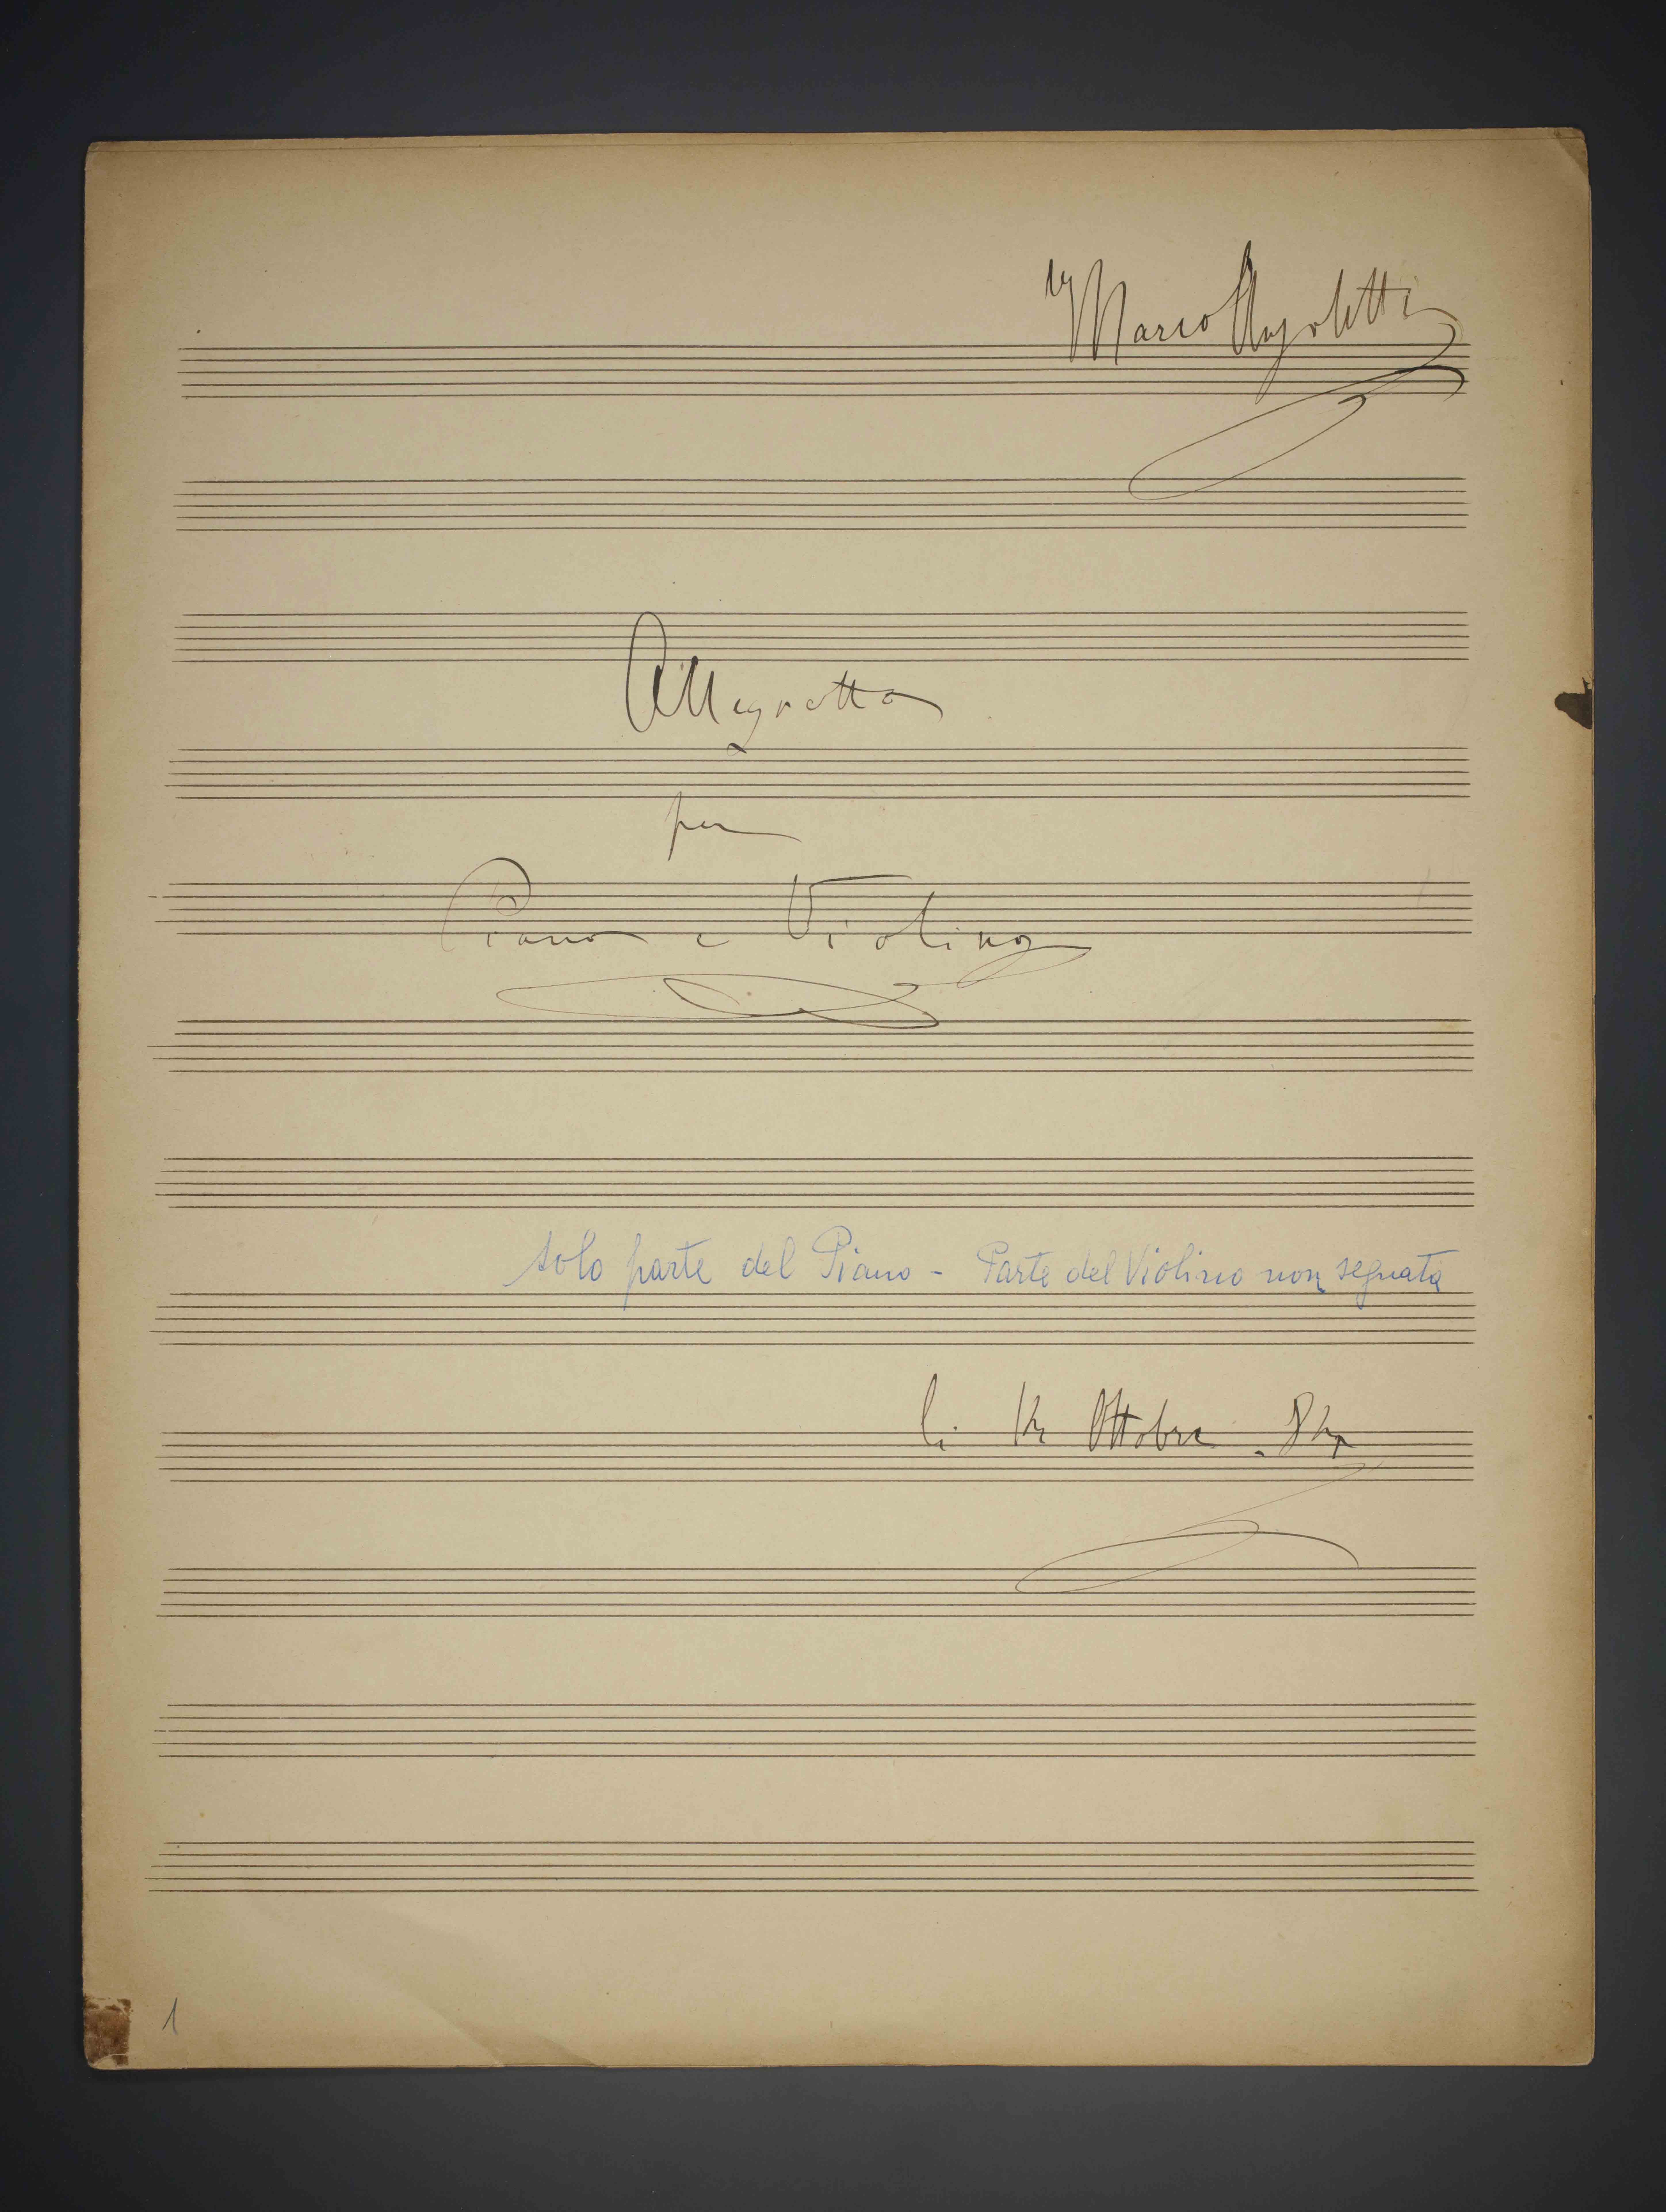 Marco Anzoletti
Allegretto
per
Piano e Violino
solo parte del Piano - Parte del Violino non segnata
li Ottobre
1